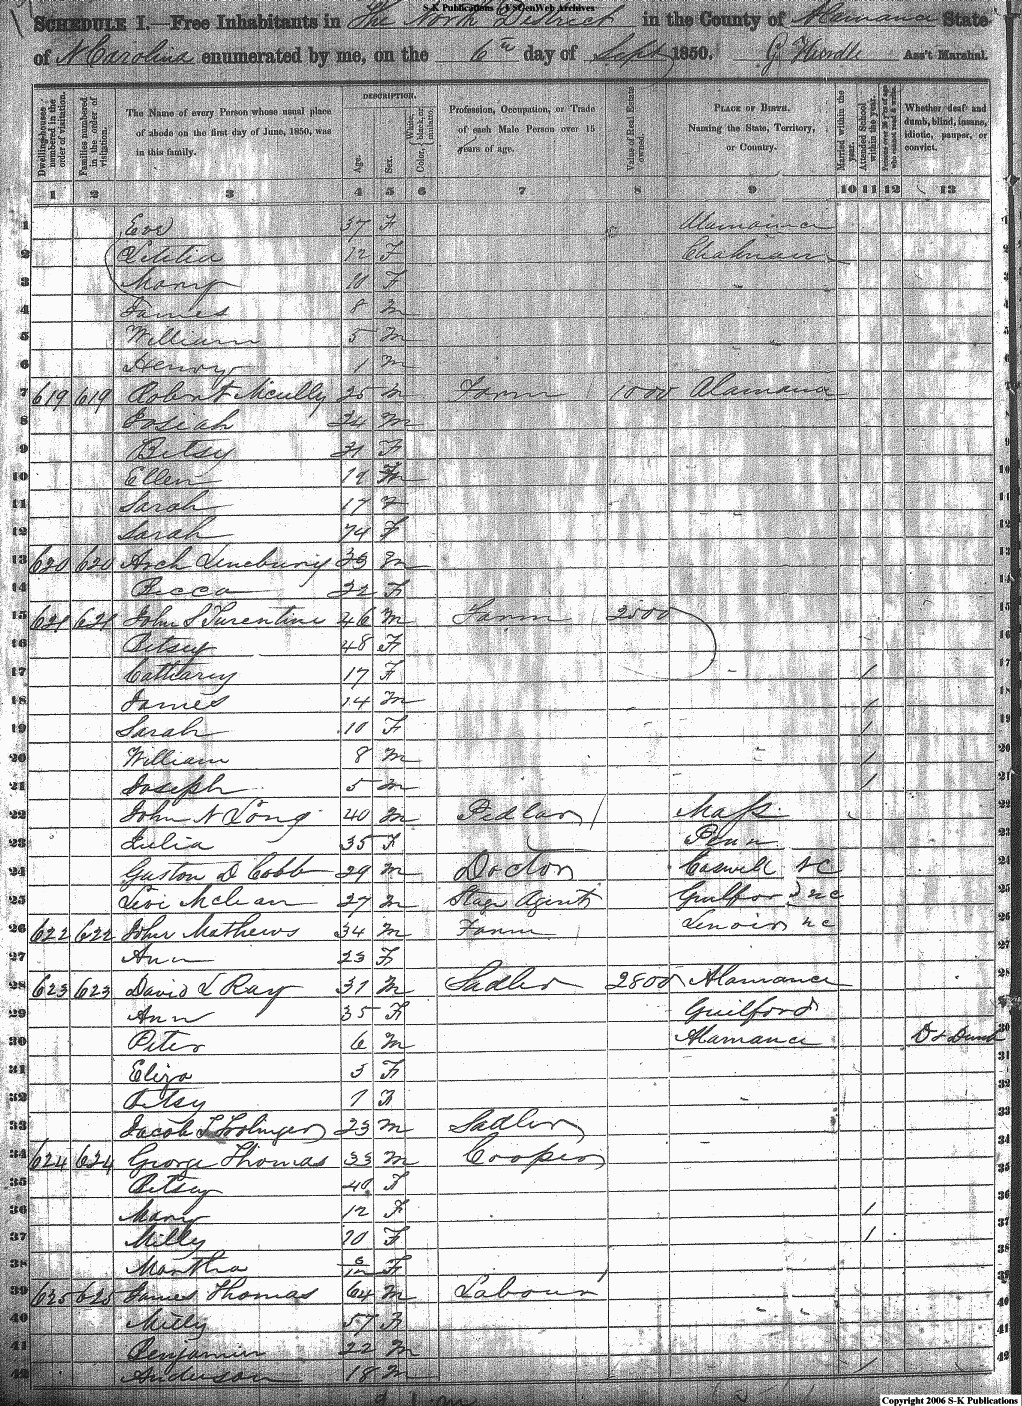 S-K Publications - USGenWeb Archives
SCHEDULE I.—Free Inhabitants in The North District in the County of Alamance State
of N Carolina enumerated by me, on the 6th day of Sept 1850. G Hurdle Ass't Marshal.
Dwelling-houses numbered in the order of visitation.
Families numbered in the order of visitation.
The Name of every Person whose usual place of abode on the first day of June, 1850, was in this family.
DESCRIPTION.
Age.
Sex.
Color, White, black, or mulatto.
Profession, Occupation, or Trade of each Male Person over 15 years of age.
Value of Real Estate owned.
PLACE OF BIRTH, Naming the State, Territory, or Country.
Married within the year.
Attended School within the year.
Persons over 20 y'rs of age who cannot read & write.
Whether deaf and dumb, blind, insane, idiotic, pauper, or convict.
1 2 3 4 5 6 7 8 9 10 11 12 13
1 Eve 37 F Alamance 1
2 Letitia 12 F Chatham 2
3 Mary 10 F 3
4 James 8 M 4
5 William 5 M 5
6 Henry 1 M 6
7 619 619 Robert McCully 25 M Farm 1000 Alamance
8 Josiah 24 M 8
9 Betsy 21 F 9
10 Ellen 19 F 10
11 Sarah 17 F 11
12 Sarah 74 F 12
13 620 620 Arch 33 M 13
14 Becca 32 F 14
15 621 621 John S Turentine 46 M Farm 2500 15
16 Betsey 48 F 16
17 Catharey 17 F 1 17
18 James 14 M 1 18
19 Sarah 10 F 1 19
20 William 8 M 1 20
21 Joseph 5 M 1 21
22 John N Long 40 M Pedlar Mass 22
23 Julia 35 F Penn 23
24 Guston D Cobb 29 M Doctor Caswell NC 24
25 Levi McLean 27 M Stage Agent Guilford NC 25
26 622 622 John Mathews 34 M Farm Lenoir NC 26
27 Ann 23 F 27
28 623 623 David L Ray 31 M Sadler 2800 Alamance 28
29 Ann 35 F Guilford
30 Peter 6 M Alamance D & Dumb 30
31 Eliza 3 F 31
32 Betsy 1 F 32
33 Jacob 23 M Sadler 33
34 624 624 George Thomas 33 M Cooper 34
35 Betsey 40 F 35
36 Mary 12 F 1 36
37 Milly 10 F 1 37
38 Martha 6/12 F 38
39 625 625 James Thomas 64 M Labour 39
40 Milly 57 F 40
41 Benjamin 22 M 41
42 Anderson 18 M 1 42
Copyright 2006 S-K Publications